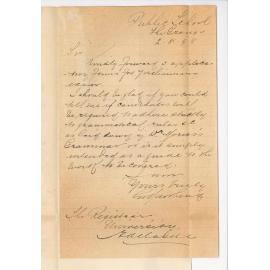 Public School
The Grange
2.8.98
Sir
Kindly forward
form for Preliminary
exam
I should be glad if you could
tell me if candidates will
be required to adhere strictly
to grammatical rules &c
as laid down by Dr Morris's
Grammar or is it simply
intended as a guide to the
work to be covered.
I am
Yours truly
The Registrar
University
Adelaide